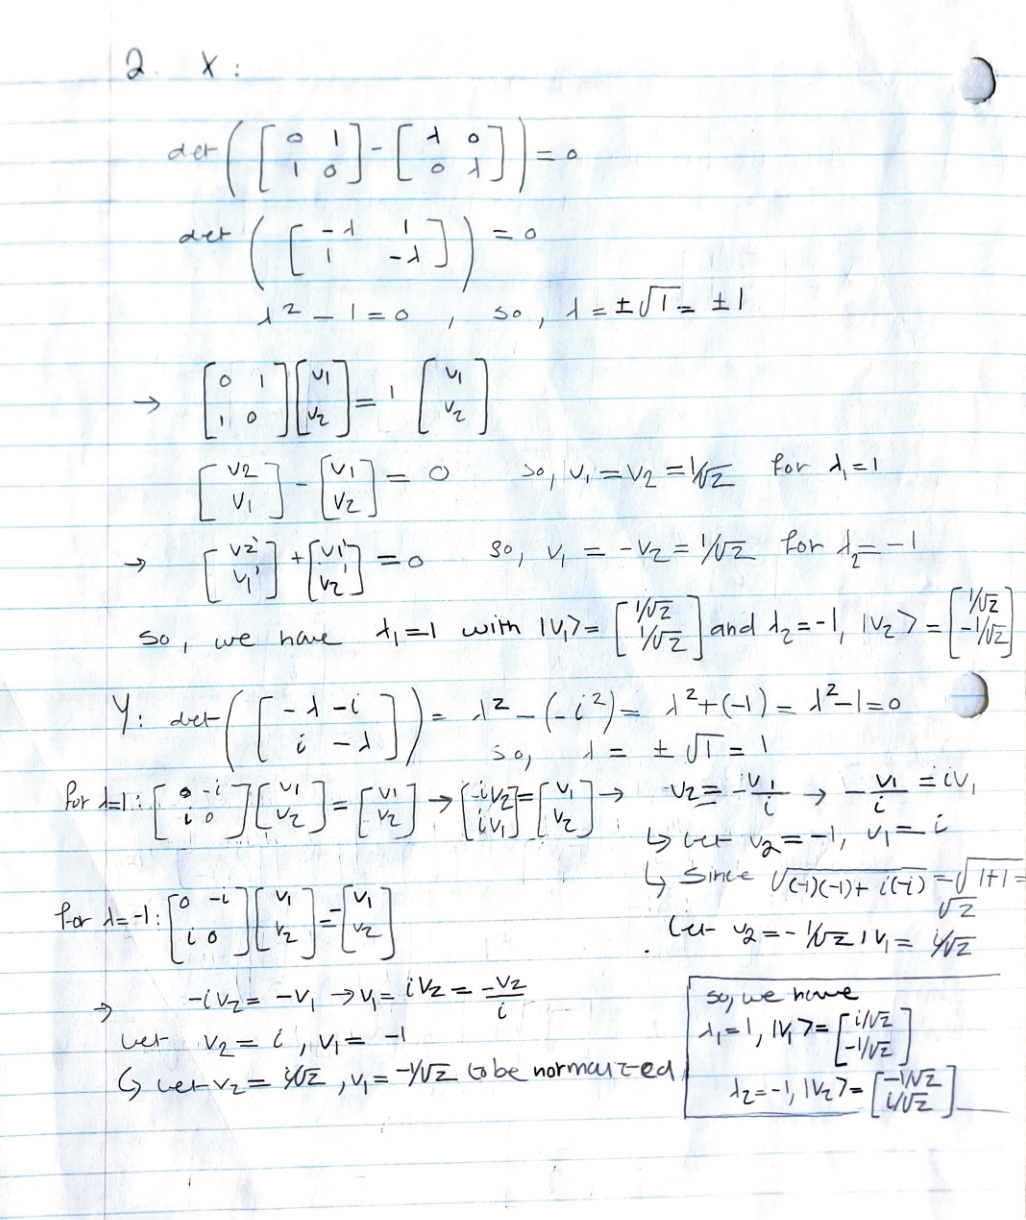 2. X:
det([0 1; 1 0] - [λ 0; 0 λ]) = 0
det([-λ 1; 1 -λ]) = 0
λ² - 1 = 0, so, λ = ±√1 = ±1
→ [0 1; 1 0][v1; v2] = 1[v1; v2]
[v2; v1] - [v1; v2] = 0 so, v1 = v2 = 1/√2 for λ1 = 1
→ [v2'; v1'] + [v1'; v2'] = 0 so, v1 = -v2 = 1/√2 for λ2 = -1
so, we have λ1=1 with |v1> = [1/√2; 1/√2] and λ2=-1, |v2> = [1/√2; -1/√2]
Y: det([-λ -i; i -λ]) = λ² - (-i²) = λ² + (-1) = λ² - 1 = 0
so, λ = ±√1 = 1
for λ=1: [0 -i; i 0][v1; v2] = [v1; v2] → [-iv2; iv1] = [v1; v2] → v2 = -v1/i → -v1/i = iv1
↳ let v2 = -1, v1 = i
↳ Since √((-1)(-1) + i(-i)) = √(1+1) = √2
let v2 = -1/√2, v1 = i/√2
for λ=-1: [0 -i; i 0][v1; v2] = -[v1; v2]
→ -iv2 = -v1 → v1 = iv2 = -v2/i
let v2 = i, v1 = -1
↳ let v2 = i/√2, v1 = -1/√2 to be normalized
so, we have
λ1=1, |v1> = [i/√2; -1/√2]
λ2=-1, |v2> = [-1/√2; i/√2]